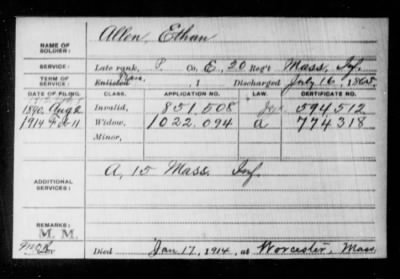 Allen, Ethan
NAME OF SOLDIER:
SERVICE: Late rank, P. Co. E, 20 Reg't Mass. Inf.
TERM OF SERVICE: Enlisted , 1 Discharged July 16, 1865.
DATE OF FILING. CLASS. APPLICATION NO. LAW. CERTIFICATE NO.
1890 Aug 2 Invalid, 851.508 594.512
1914 Feb 11 Widow, 1022.094 a 774318
Minor,
A, 15 Mass. Inf.
ADDITIONAL SERVICES:
REMARKS:
M. M.
Died Jan 17, 1914, at Worcester, Mass.